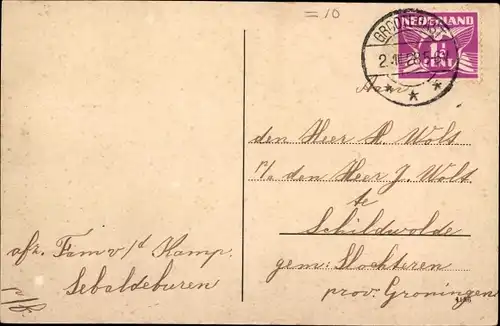 =10
NEDERLAND
1½
CENT
Aan
den Heer H. Wolt
p/a den Heer J. Wolt
te
Schildwolde
gem: Slochteren
prov. Groningen
afz. Fam v/d Kamp.
Sebaldeburen